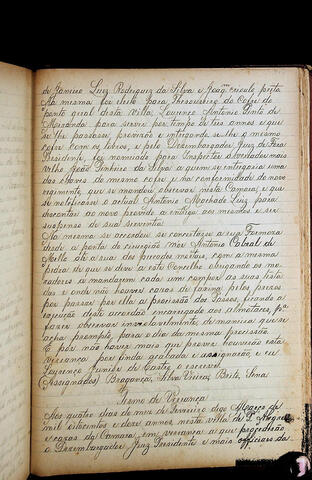 de Janeiro Luiz Rodrigues da Silva e João crioulo preto
Na mesma foi eleito para Thesoureiro do Cofre do
ponto geral desta Villa, Lourenço Antonio Pinto de
Miranda para servir por tempo de tres annos e que
se lhe passasse provisão e entregando-se-lhe o mesmo
cofre com os livros, e pelo Desembargador Juiz de Fora
Presidente, foi nomeado para Inspector o Vereador mais
velho João Pinheiro da Silva a quem se entregará umas
das chaves do mesmo cofre e na conformidade do novo
regimento, que se mandou observar nesta Camara; e que
se notificasse o actual Antonio Machado Luiz para
descontar ao novo provido a entrega aos mesmos e ser
suspenso de sua serventia.
Na mesma se accordou se concertasse a rua Formosa
desde a ponta do cirurgião Mór Antonio Cabral de
Mello até a rua dos pescados mortaes, com a mesma
pedra de que se deve a este Conselho obrigando os mo-
radores a mandarem cada um compor as suas testa-
das e onde não houver casas de farina pelos presos
por passar por ella a procissão dos Passos, ficando a
execução deste accordão encarregado aos almotaces, p.ª
fazer observar inviolavelmente de maneira que se
ache prompto, para o dia da mesma procissão.
E pelo não haver mais que prover houverão esta
vereança por finda acabada e assignarão, e eu
Lourenço Junior de Castro o escrevi.
(Assignados) Bragança, Silva Vieira, Brito, Sena
Termo de Vereança
Aos quatro dias do mez de Fevereiro digo Março de
mil oitocentos e doze annos, nesta villa de
e cazas da Camara, em vereança a que prezedirão
o Dezembargador, Juiz Presidente e mais officiaes da